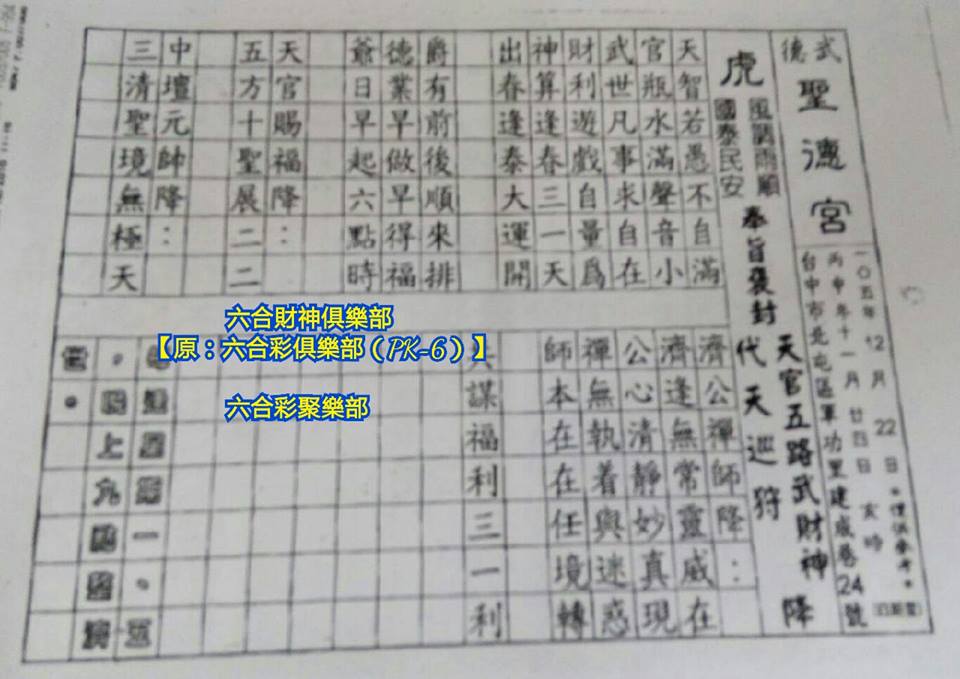 武德
聖德宮
一〇五年12月22日。僅供參考。
丙申年十一月廿四日 亥時
台中市北屯區軍功里建成巷24號
天官五路武財神 降
奉旨褒封 代天巡狩
虎
風調雨順
國泰民安
天智若愚不自滿
官瓶水滿聲音小
武世凡事求自在
財利遊戲自量爲
神算逢春三一天
出春逢泰大運開
爵有前後順來排
德業早做早得福
爺日早起六點時
天官賜福降:
五方十聖展二二
中壇元帥降:
三清聖境無極天
濟公禪師降:
濟逢無常靈威在
公心清靜妙真現
禪無執着與迷惑
師本在在任境轉
共謀福利三一利
每逢星期一。五
。晚上九點整濟
世。
六合財神俱樂部
【原:六合彩俱樂部(PK-6)】
六合彩聚樂部